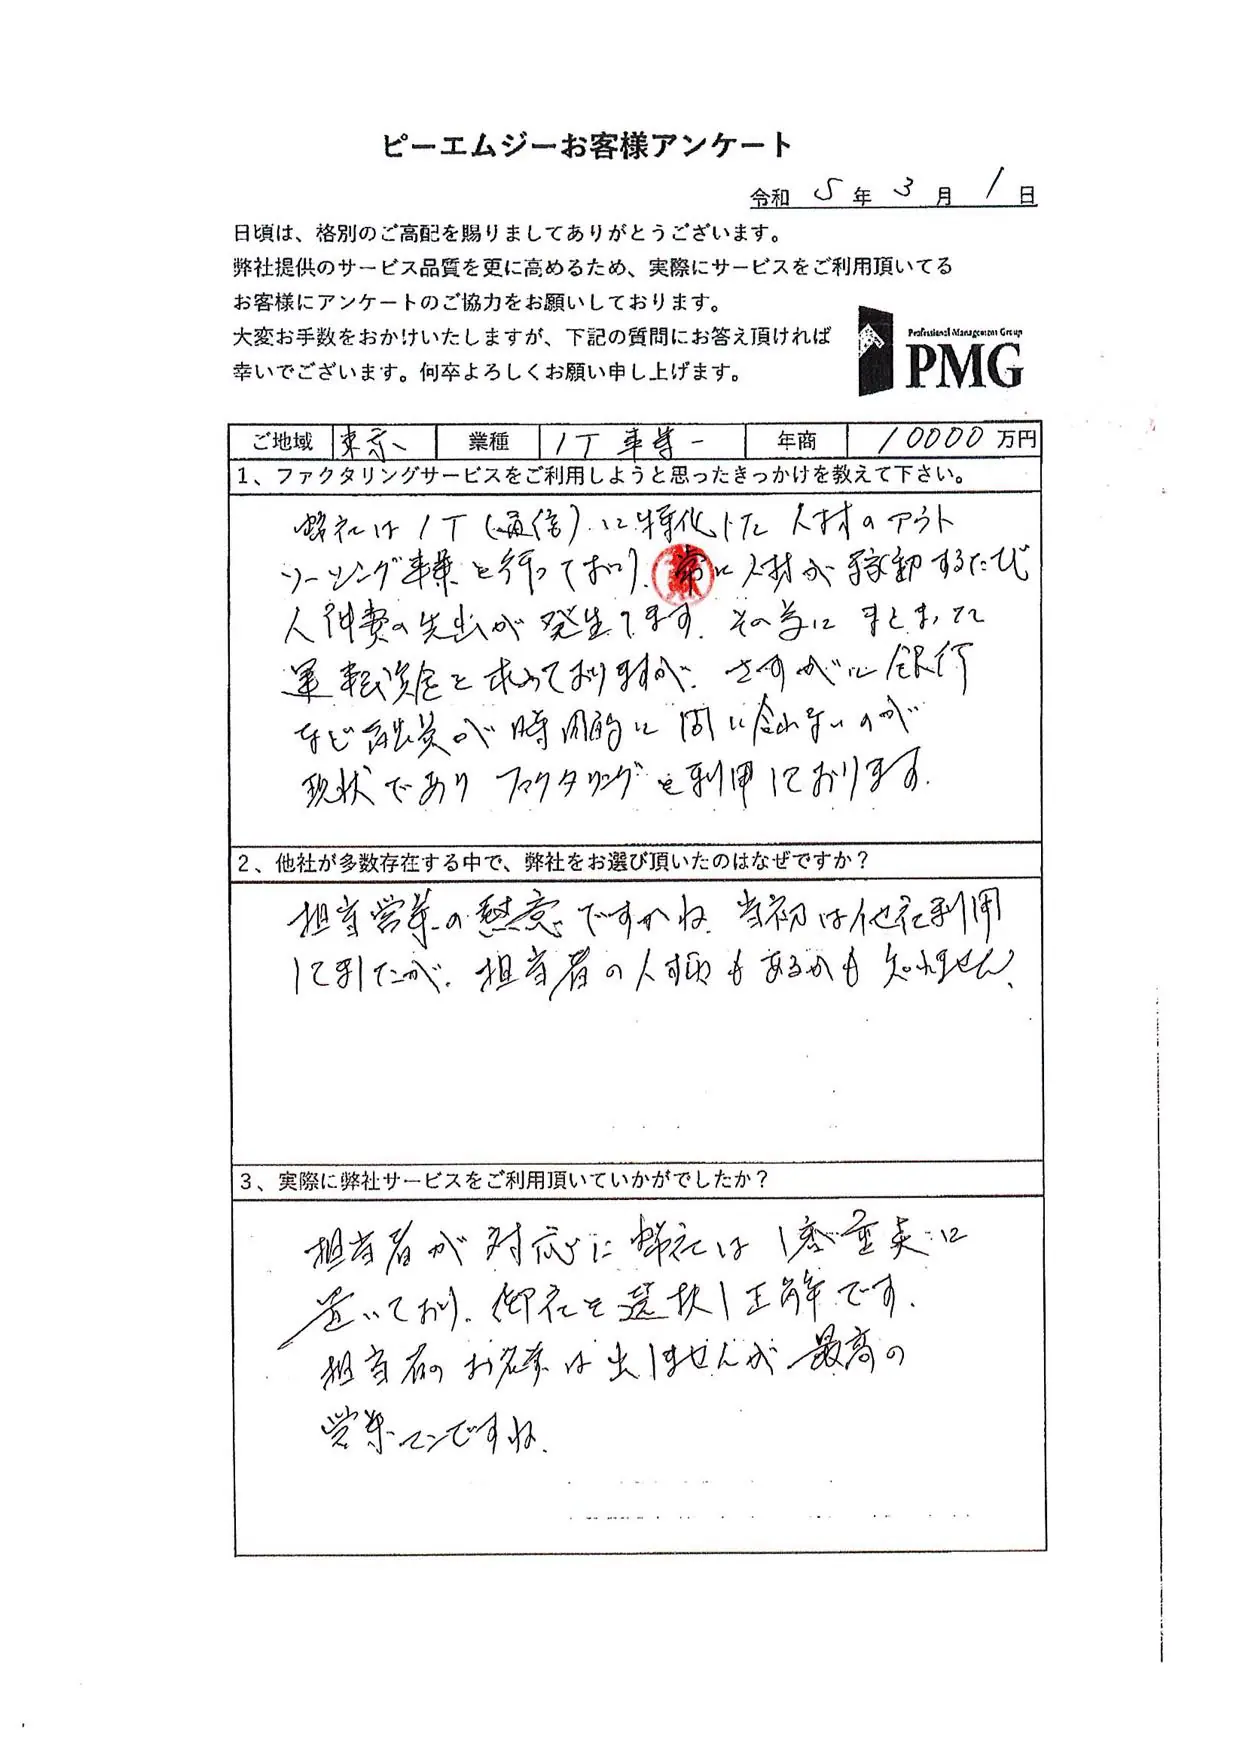 ピーエムジーお客様アンケート
令和 5 年 3 月 1 日
日頃は、格別のご高配を賜りましてありがとうございます。
弊社提供のサービス品質を更に高めるため、実際にサービスをご利用頂いてる
お客様にアンケートのご協力をお願いしております。
大変お手数をおかけいたしますが、下記の質問にお答え頂ければ
幸いでございます。何卒よろしくお願い申し上げます。
Professional Management Group
PMG
ご地域 東京 業種 IT 年商 10000 万円
1、ファクタリングサービスをご利用しようと思ったきっかけを教えて下さい。
弊社はIT(通信)に特化した人材のアウト
ソーシング事業を行っており、常に人材が稼動するたび
人件費の先出が発生してます。その為にまとまった
運転資金を求めておりますが、さすがに銀行
など融資が時間的に間に合わないのが
現状でありファクタリングを利用しております。
2、他社が多数存在する中で、弊社をお選び頂いたのはなぜですか?
担当営業の熱意ですかね。当初は他社利用
してましたが、担当者の人柄もあるかも知れません。
3、実際に弊社サービスをご利用頂いていかがでしたか?
担当者が対応に弊社は1番重点に
置いており、御社を選択し正解です。
担当者のお名前は出しませんが最高の
営業マンですね。